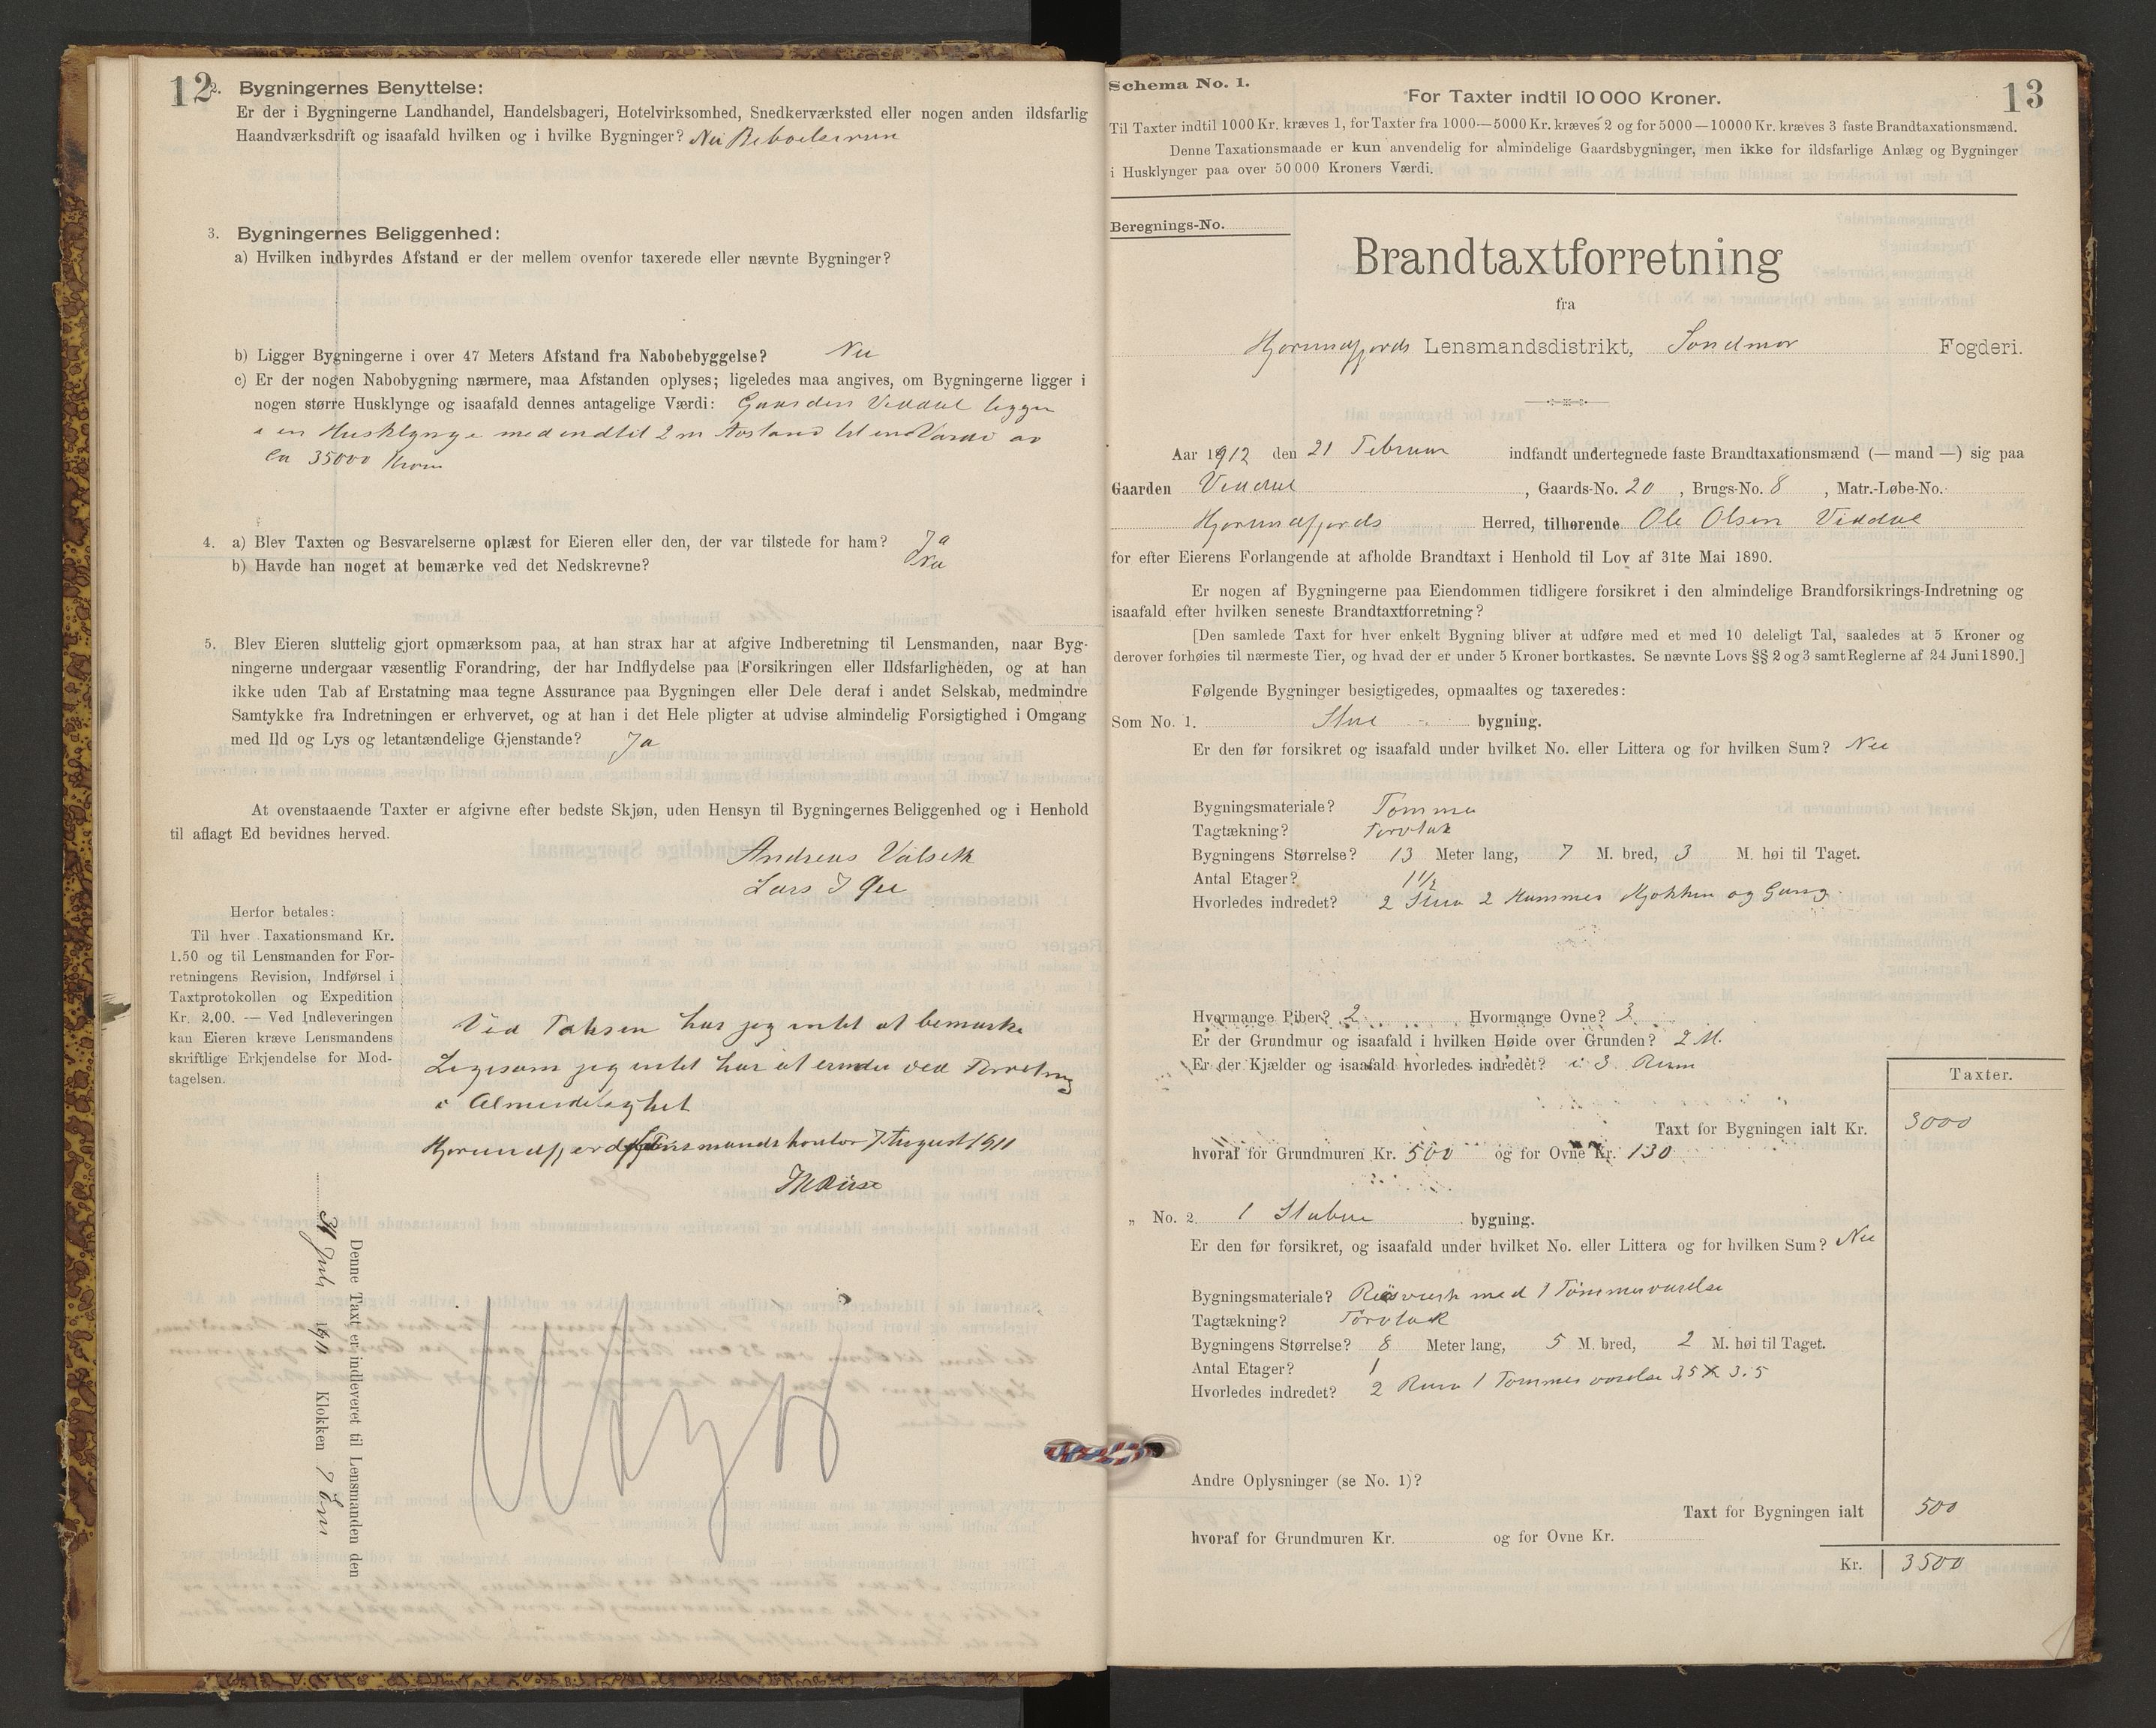 12
2. Bygningernes Benyttelse:
Er der i Bygningerne Landhandel, Handelsbageri, Hotelvirksomhed, Snedkerværksted eller nogen anden ildsfarlig
Haandværksdrift og isaafald hvilken og i hvilke Bygninger? Nei Beboelsesrum
3. Bygningernes Beliggenhed:
a) Hvilken indbyrdes Afstand er der mellem ovenfor taxerede eller nævnte Bygninger?
b) Ligger Bygningerne i over 47 Meters Afstand fra Nabobebyggelse? Nei
c) Er der nogen Nabobygning nærmere, maa Afstanden oplyses; ligeledes maa angives, om Bygningerne ligger i
nogen større Husklynge og isaafald dennes antagelige Værdi: Gaarden Viddal ligger
i en Husklynge med indtil 2 m Avstand til en Værdi av
Ca 35000 Kroner
4. a) Blev Taxten og Besvarelserne oplæst for Eieren eller den, der var tilstede for ham? Ja
b) Havde han noget at bemærke ved det Nedskrevne? Nei
5. Blev Eieren sluttelig gjort opmærksom paa, at han strax har at afgive Indberetning til Lensmanden, naar Byg-
ningerne undergaar væsentlig Forandring, der har Indflydelse paa Forsikringen eller Ildsfarligheden, og at han
ikke uden Tab af Erstatning maa tegne Assurance paa Bygningen eller Dele deraf i andet Selskab, medmindre
Samtykke fra Indretningen er erhvervet, og at han i det Hele pligter at udvise almindelig Forsigtighed i Omgang
med Ild og Lys og letantændelige Gjenstande? Ja
At ovenstaaende Taxter er afgivne efter bedste Skjøn, uden Hensyn til Bygningernes Beliggenhed og i Henhold
til aflagt Ed bevidnes herved.
Andreas Valseth
Lars I
Herfor betales:
Til hver Taxationsmand Kr.
1.50 og til Lensmanden for For-
retningens Revision, Indførsel i
Taxtprotokollen og Expedition
Kr. 2.00. — Ved Indleveringen
kan Eieren kræve Lensmandens
skriftlige Erkjendelse for Mod-
tagelsen.
Ved Taksen har jeg intet at bemærke
Ligesom jeg intet har at erindre ved Forretning
i Almindelighet
Hjørundfjord Lensmandskontor 7 August 1911
Denne Taxt er indleveret til Lensmanden den
31 Juli 1911 Klokken 7 Em
Schema No. 1.
For Taxter indtil 10 000 Kroner.
13
Til Taxter indtil 1000 Kr. kræves 1, for Taxter fra 1000—5000 Kr. kræves 2 og for 5000—10000 Kr. kræves 3 faste Brandtaxationsmænd.
Denne Taxationsmaade er kun anvendelig for almindelige Gaardsbygninger, men ikke for ildsfarlige Anlæg og Bygninger
i Husklynger paa over 50 000 Kroners Værdi.
Beregnings-No.
Brandtaxtforretning
fra
Hjørundfjords Lensmandsdistrikt, Søndmør Fogderi.
Aar 1912 den 21 Februar indfandt undertegnede faste Brandtaxationsmænd (— mand —) sig paa
Gaarden Viddal, Gaards-No. 20, Brugs-No. 8, Matr.-Løbe-No.
Hjørundfjords Herred, tilhørende Ole Olsen Viddal
for efter Eierens Forlangende at afholde Brandtaxt i Henhold til Lov af 31te Mai 1890.
Er nogen af Bygningerne paa Eiendommen tidligere forsikret i den almindelige Brandforsikrings-Indretning og
isaafald efter hvilken seneste Brandtaxtforretning?
[Den samlede Taxt for hver enkelt Bygning bliver at udføre med et med 10 deleligt Tal, saaledes at 5 Kroner og
derover forhøies til nærmeste Tier, og hvad der er under 5 Kroner bortkastes. Se nævnte Lovs §§ 2 og 3 samt Reglerne af 24 Juni 1890.]
Følgende Bygninger besigtigedes, opmaaltes og taxeredes:
Som No. 1. Stue bygning.
Er den før forsikret og isaafald under hvilket No. eller Littera og for hvilken Sum? Nei
Bygningsmateriale? Tømmer
Tagtækning? Torvtak
Bygningens Størrelse? 13 Meter lang, 7 M. bred, 3 M. høi til Taget.
Antal Etager? 1 1/2
Hvorledes indredet? 2 Stuer 2 Kammer Kjøkken og Gang.
Hvormange Piber? 2 Hvormange Ovne? 3
Er der Grundmur og isaafald i hvilken Høide over Grunden? 2 M.
Er der Kjælder og isaafald hvorledes indredet? i 3 Rum
Taxter.
Taxt for Bygningen ialt Kr. 3000
hvoraf for Grundmuren Kr. 500 og for Ovne Kr. 130
„ No. 2. 1 Stabur bygning.
Er den før forsikret, og isaafald under hvilket No. eller Littera og for hvilken Sum? Nei
Bygningsmateriale? Reisverk med 1 Tømmerværelse
Tagtækning? Torvtak
Bygningens Størrelse? 8 Meter lang, 5 M. bred, 2 M. høi til Taget.
Antal Etager? 1
Hvorledes indredet? 2 Rum 1 Tømmerværelse 3,5 X 3.5
Andre Oplysninger (se No. 1)?
Taxt for Bygningen ialt 500
hvoraf for Grundmuren Kr. og for Ovne Kr.
Kr. 3500